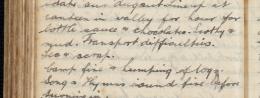 canteen in valley for hour for
bottle sauce & chocolate. Lootly &
mud. Transport difficulties.
Tea & scrap.
Camp fire & humping of logs.
Song & Hymns round fire before
turning in